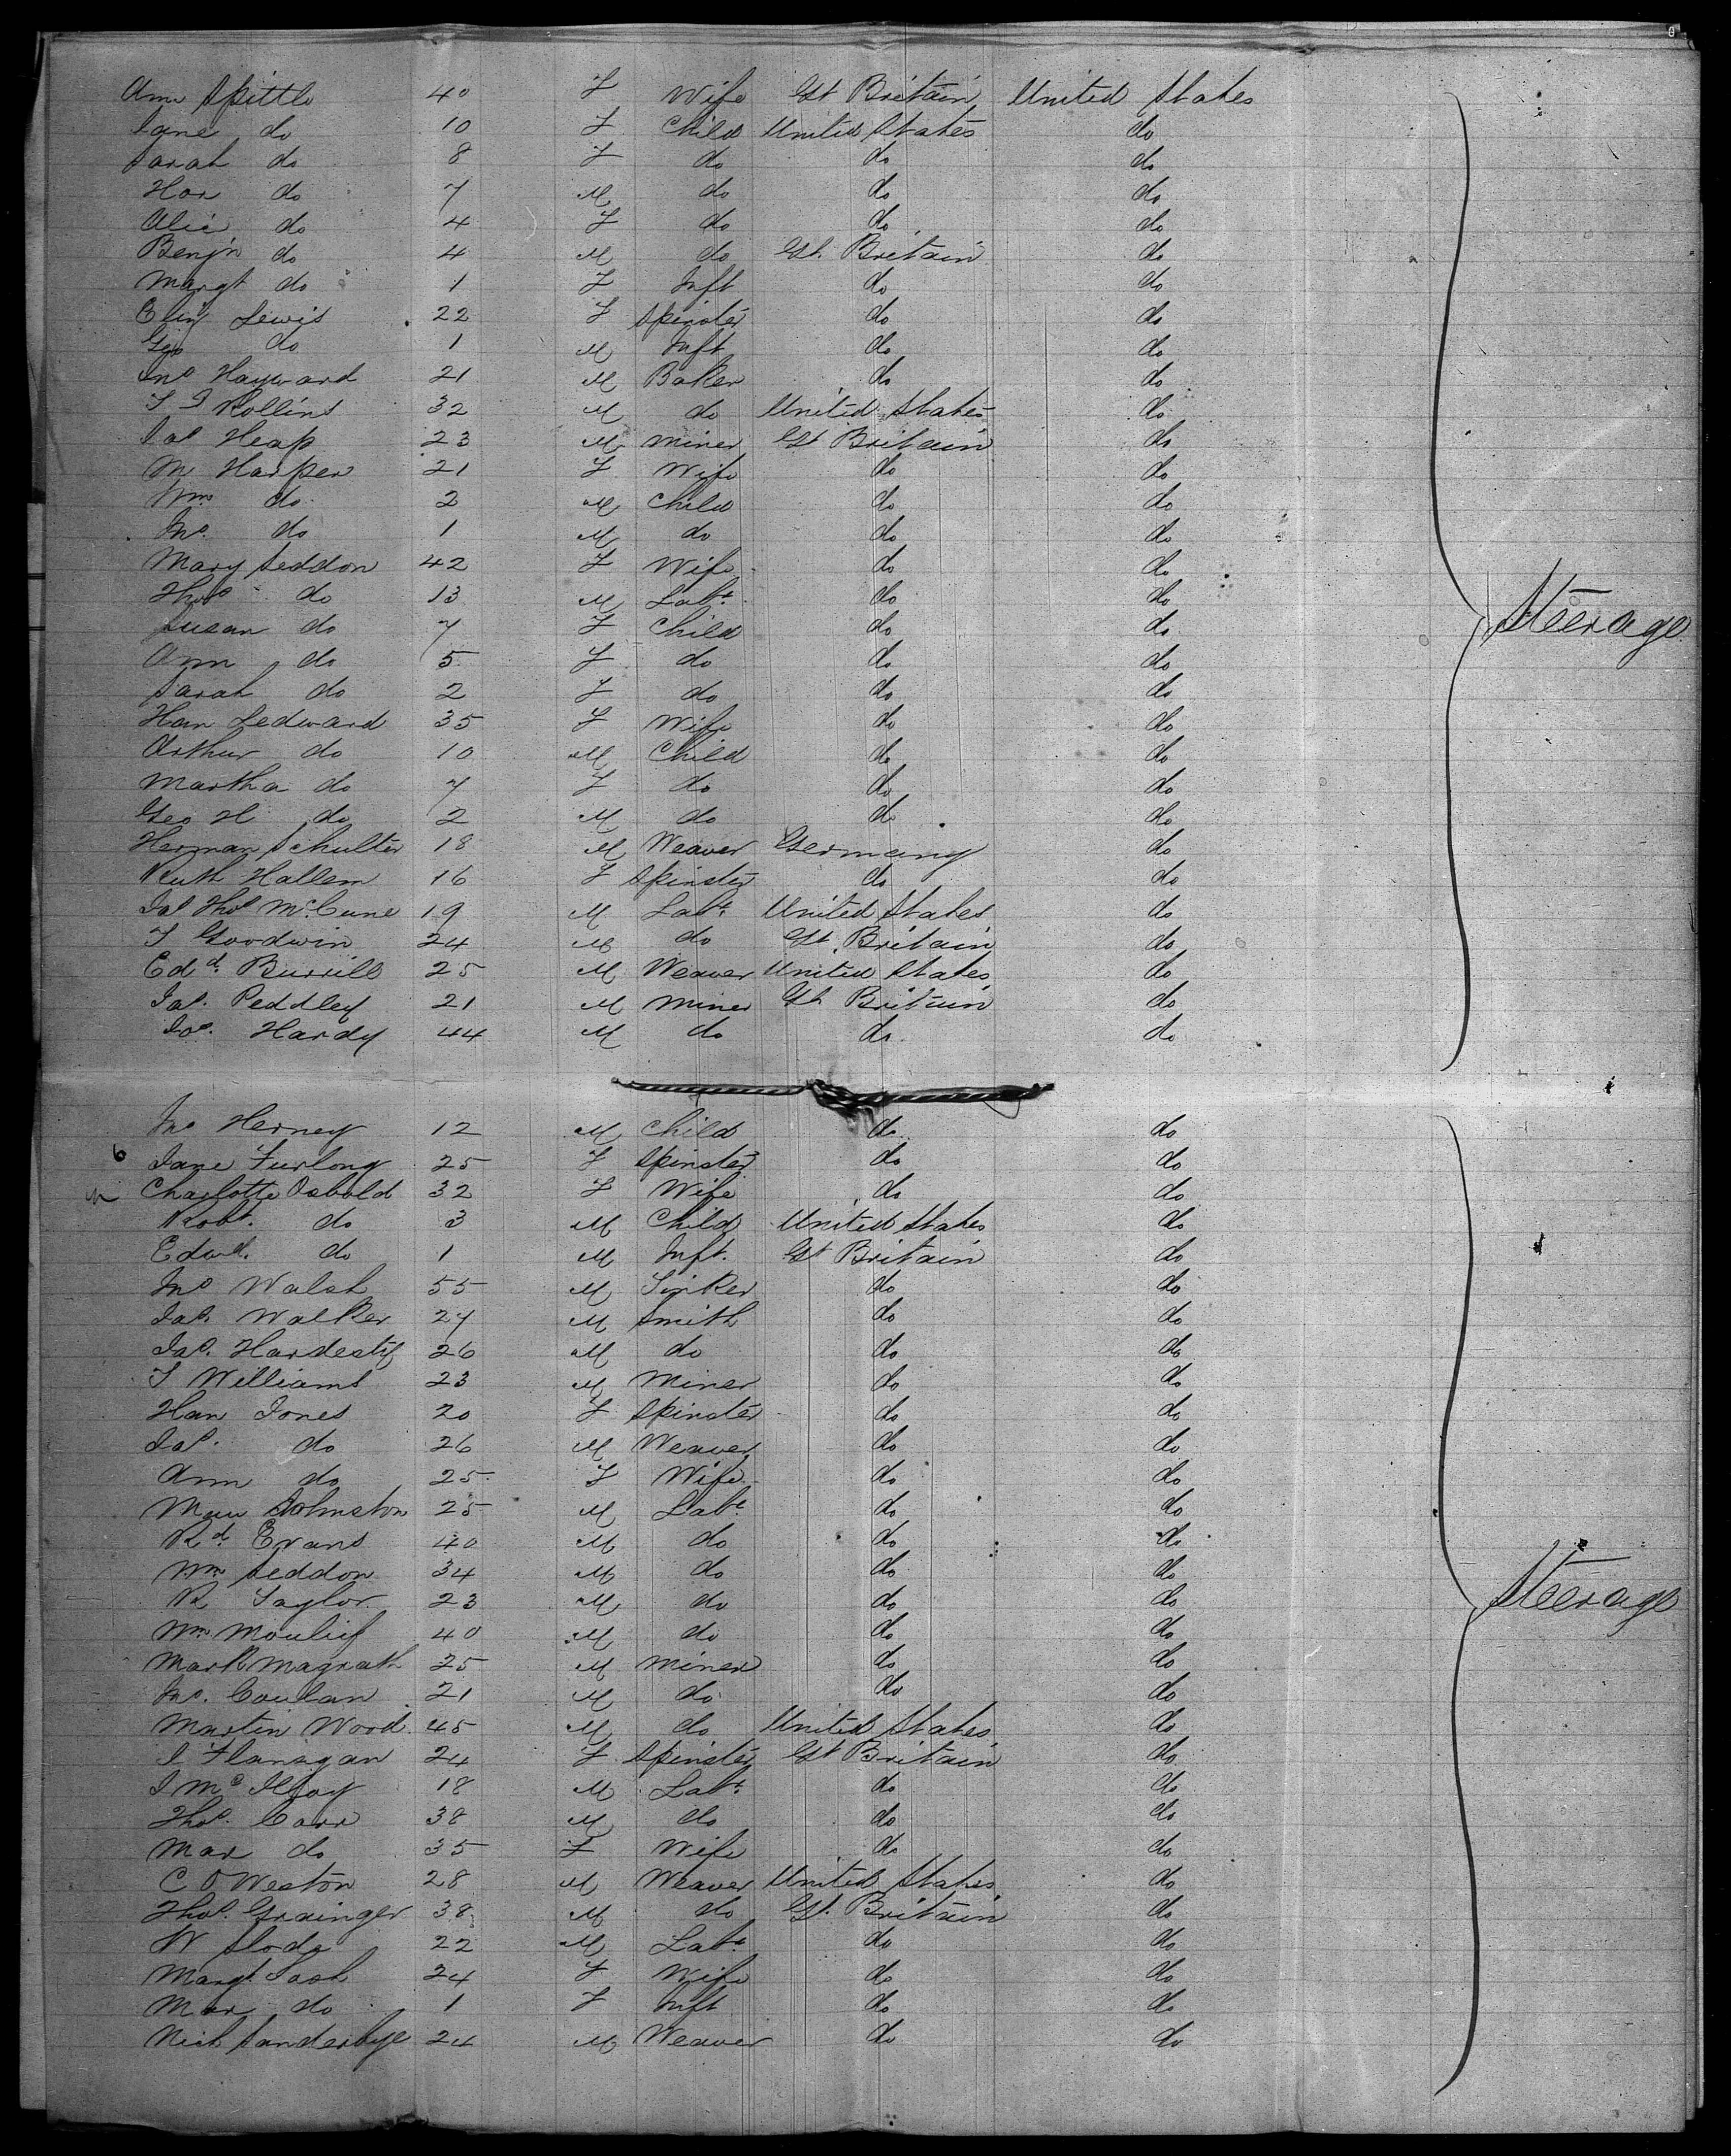 Ann Spittle 40 F Wife Gt Britain United States
Jane do 10 F Child United States do
Sarah do 8 F do do do
Har do 7 M do do do
Alice do 4 F do do do
Benjn do 4 M do Gt. Britain do
Margt do 1 F Inft do do
Eliz Lewis 22 F Spinster do do
Geo do 1 M Inft do do
Jno Hayward 21 M Baker do do
T J Rollins 32 M do United States do
Jas Heap 23 M Miner Gt Britain do
M Harper 21 F Wife do do
Wm do 2 M Child do do
Jno. do 1 M do do do
Mary Seddon 42 F Wife do do
Thos do 13 M Labr. do do
Susan do 7 F Child do do
Steerage
Ann do 5 F do do do
Sarah do 2 F do do do
Han Ledward 35 F Wife do do
Arthur do 10 M Child do do
Martha do 7 F do do do
Geo H do 2 M do do do
Herman Schulter 18 M Weaver Germany do
Ruth Hallem 16 F Spinster do do
Jas Thos McCune 19 M Labr. United States do
T Goodwin 24 M do Gt. Britain do
Edd. Burrill 25 M Weaver United States do
Jas. Peddley 21 M Miner Gt Britain do
Jos. Hardy 44 M do do do
Jno Herney 12 M Child do do
6 Jane Furlong 25 F Spinster do do
Charlotte Osbold 32 F Wife do do
Robt. do 3 M Child United States do
Edwd. do 1 M Inft. Gt Britain do
Jno Walsh 55 M Sinker do do
Jas. Walker 27 M Smith do do
Jas. Hardesty 26 M do do do
T Williams 23 M Miner do do
Han Jones 20 F Spinster do do
Jas. do 26 M Weaver do do
Ann do 25 F Wife do do
Johnston 25 M Labr do do
Rd. Evans 40 M do do do
Wm Seddon 34 M do do do
R Taylor 23 M do do do
Steerage
Wm 40 M do do do
Mark Magrath 25 M Miner do do
Jno. Coulan 21 M do do do
Martin Wood 45 M do United States do
J Flanagan 24 F Spinster Gt Britain do
J Mc Ilroy 18 M Labr. do do
Thos. Carr 38 M do do do
Mar do 35 F Wife do do
C O Weston 28 M Weaver United States do
Thos. Grainger 38 M do Gt. Britain do
W 22 M Labr do do
Margt. 24 F Wife do do
Mar do 1 F Inft do do
Nich 24 M Weaver do do